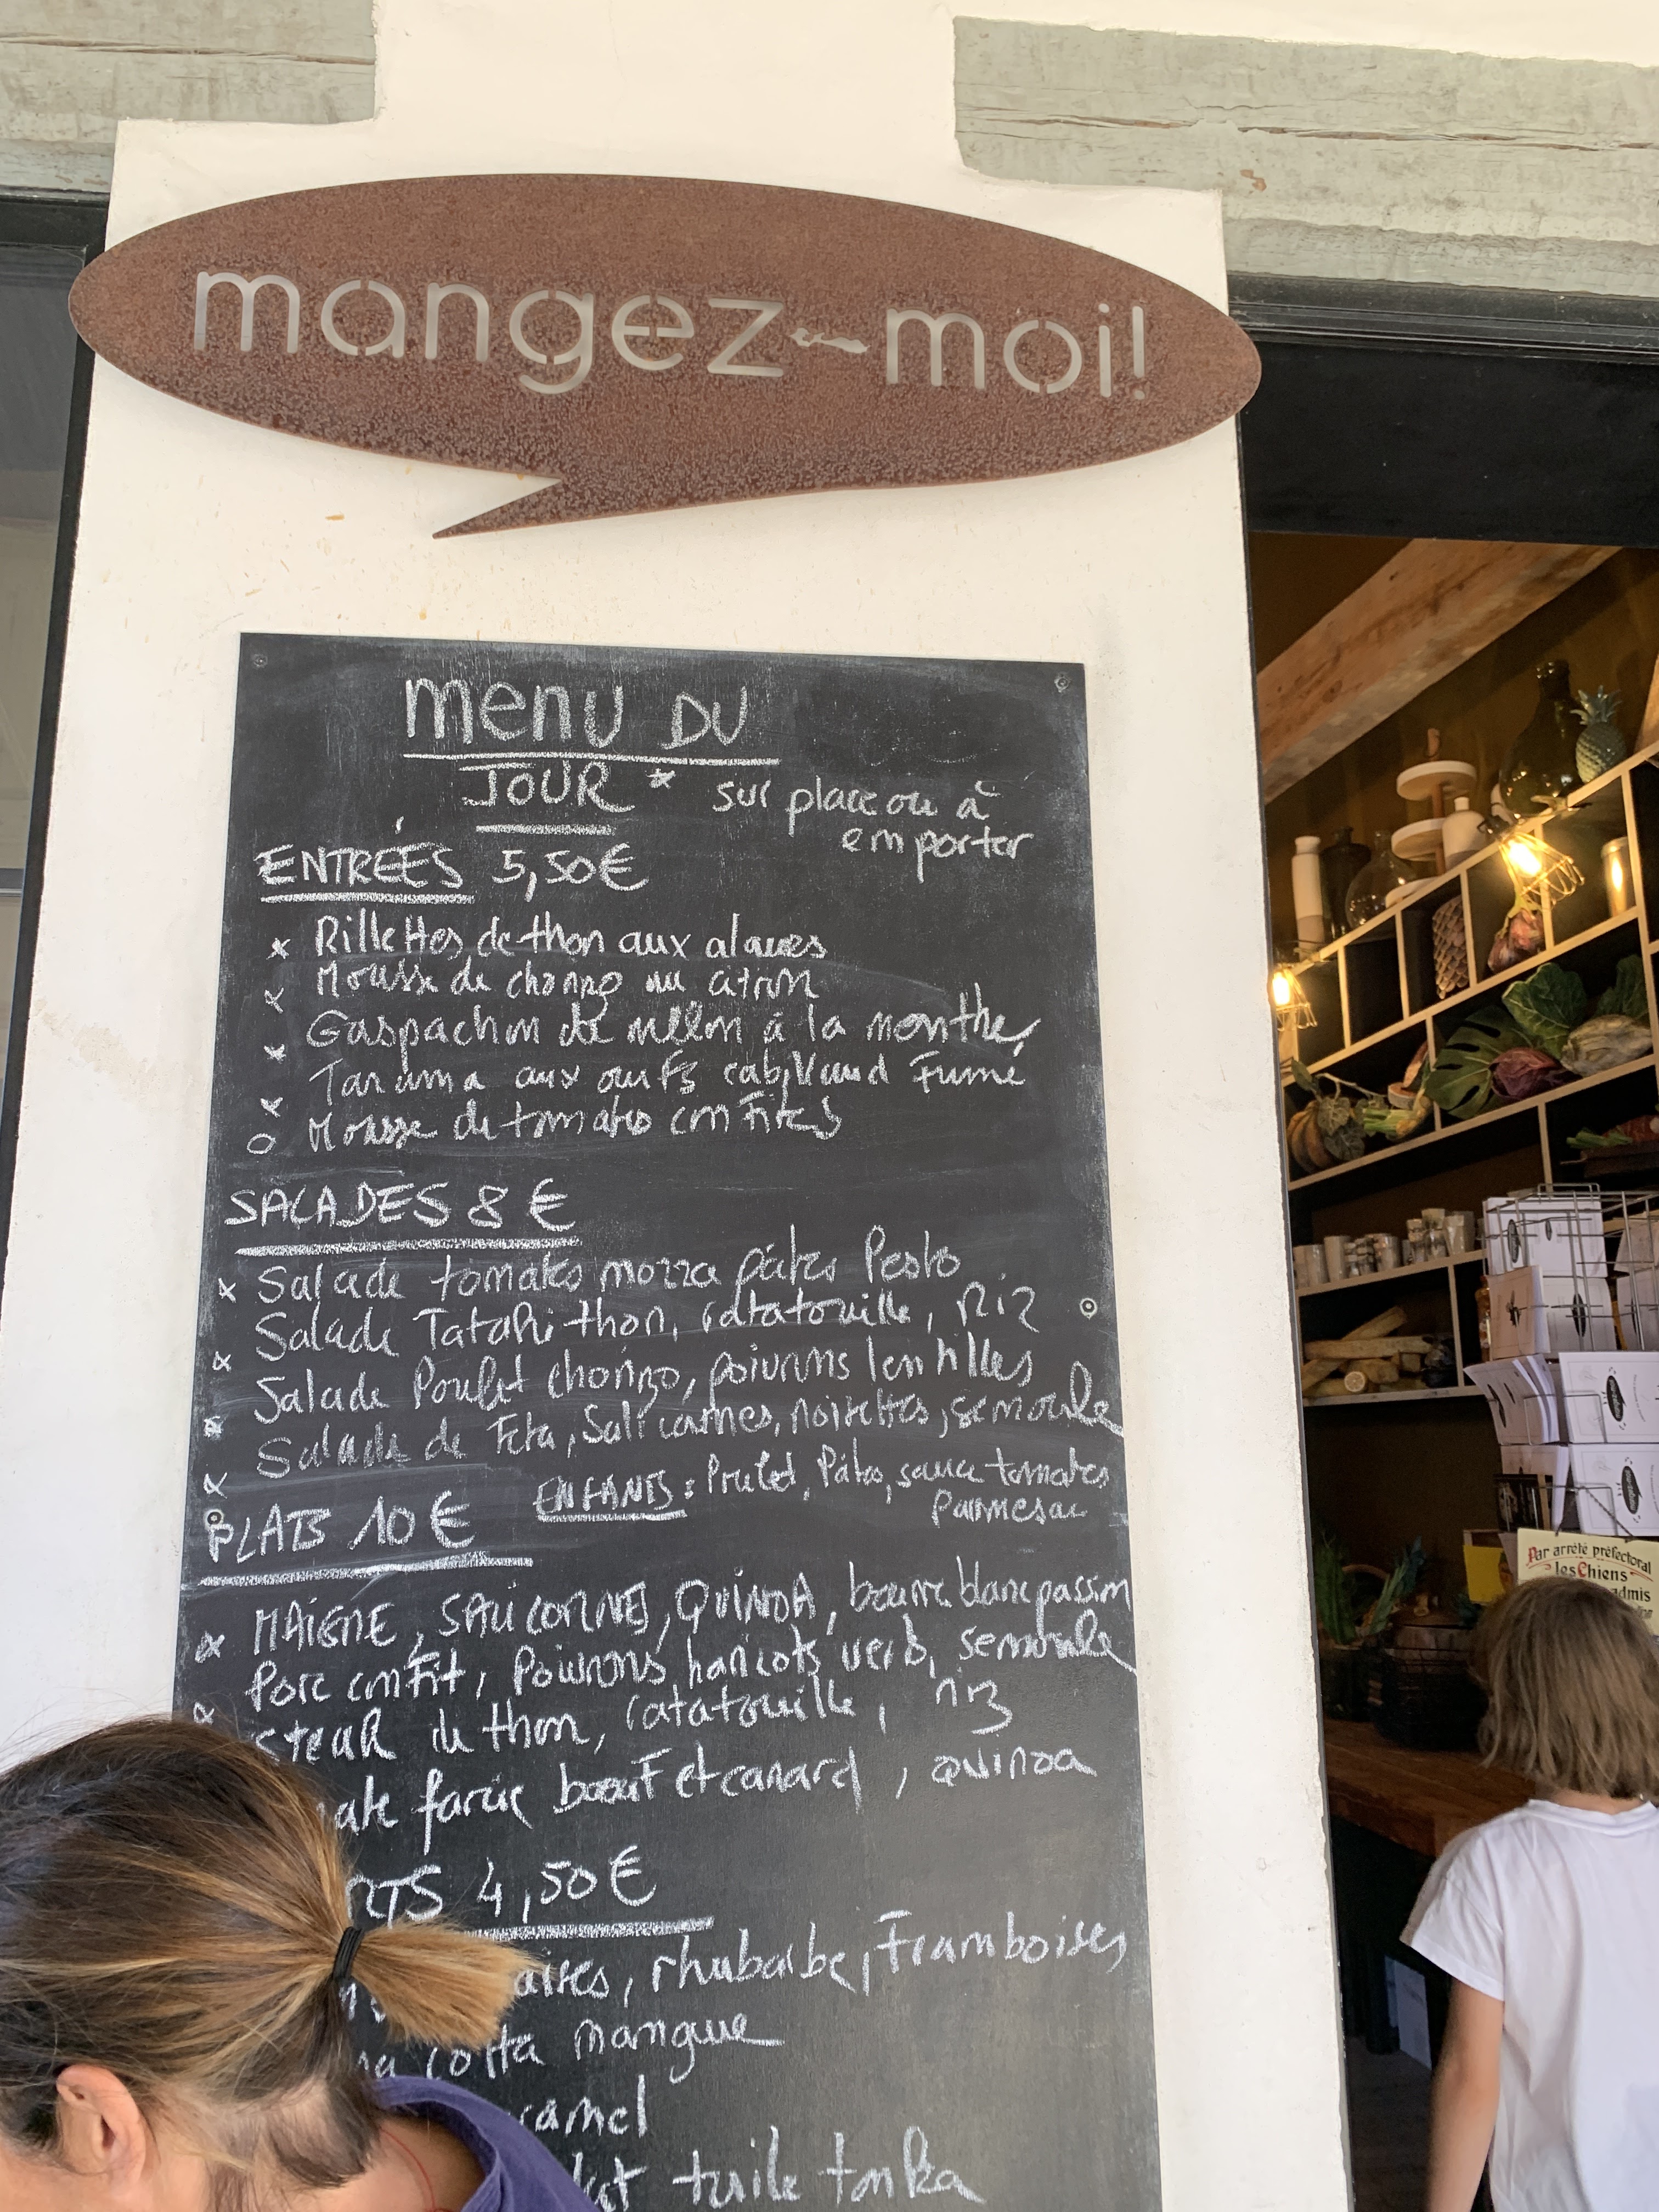 mangez-moi!
menu DU
JOUR * sur place ou à
emporter
ENTRÉES 5,50€
x Rillettes de thon aux algues
x Mousse de chorizo au citron
x Gaspachon de melon à la menthe
x Tarama aux oeufs cabillaud Fumé
o Mousse de tomates confites
SALADES 8 €
x Salade tomates mozza pâtes Pesto
x Salade Tataki thon, ratatouille, riz
x Salade Poulet chorizo, poivrons lentilles
x Salade de Feta, Salicornes, noisettes, semoule
ENFANTS : Poulet, Pâtes, sauce tomates
parmesan
PLATS 10 €
x MAIGRE, SALICORNES, QUINOA, beurre blanc passion
x Porc confit, Poivrons, haricots verts, semoule
steak de thon, ratatouille, riz
ate farcie boeuf et canard, quinoa
RTS 4,50€
aises, rhubarbe, Framboises
na cotta mangue
ramel
tuile tonka
Par arrêté préfectoral
les Chiens
admis